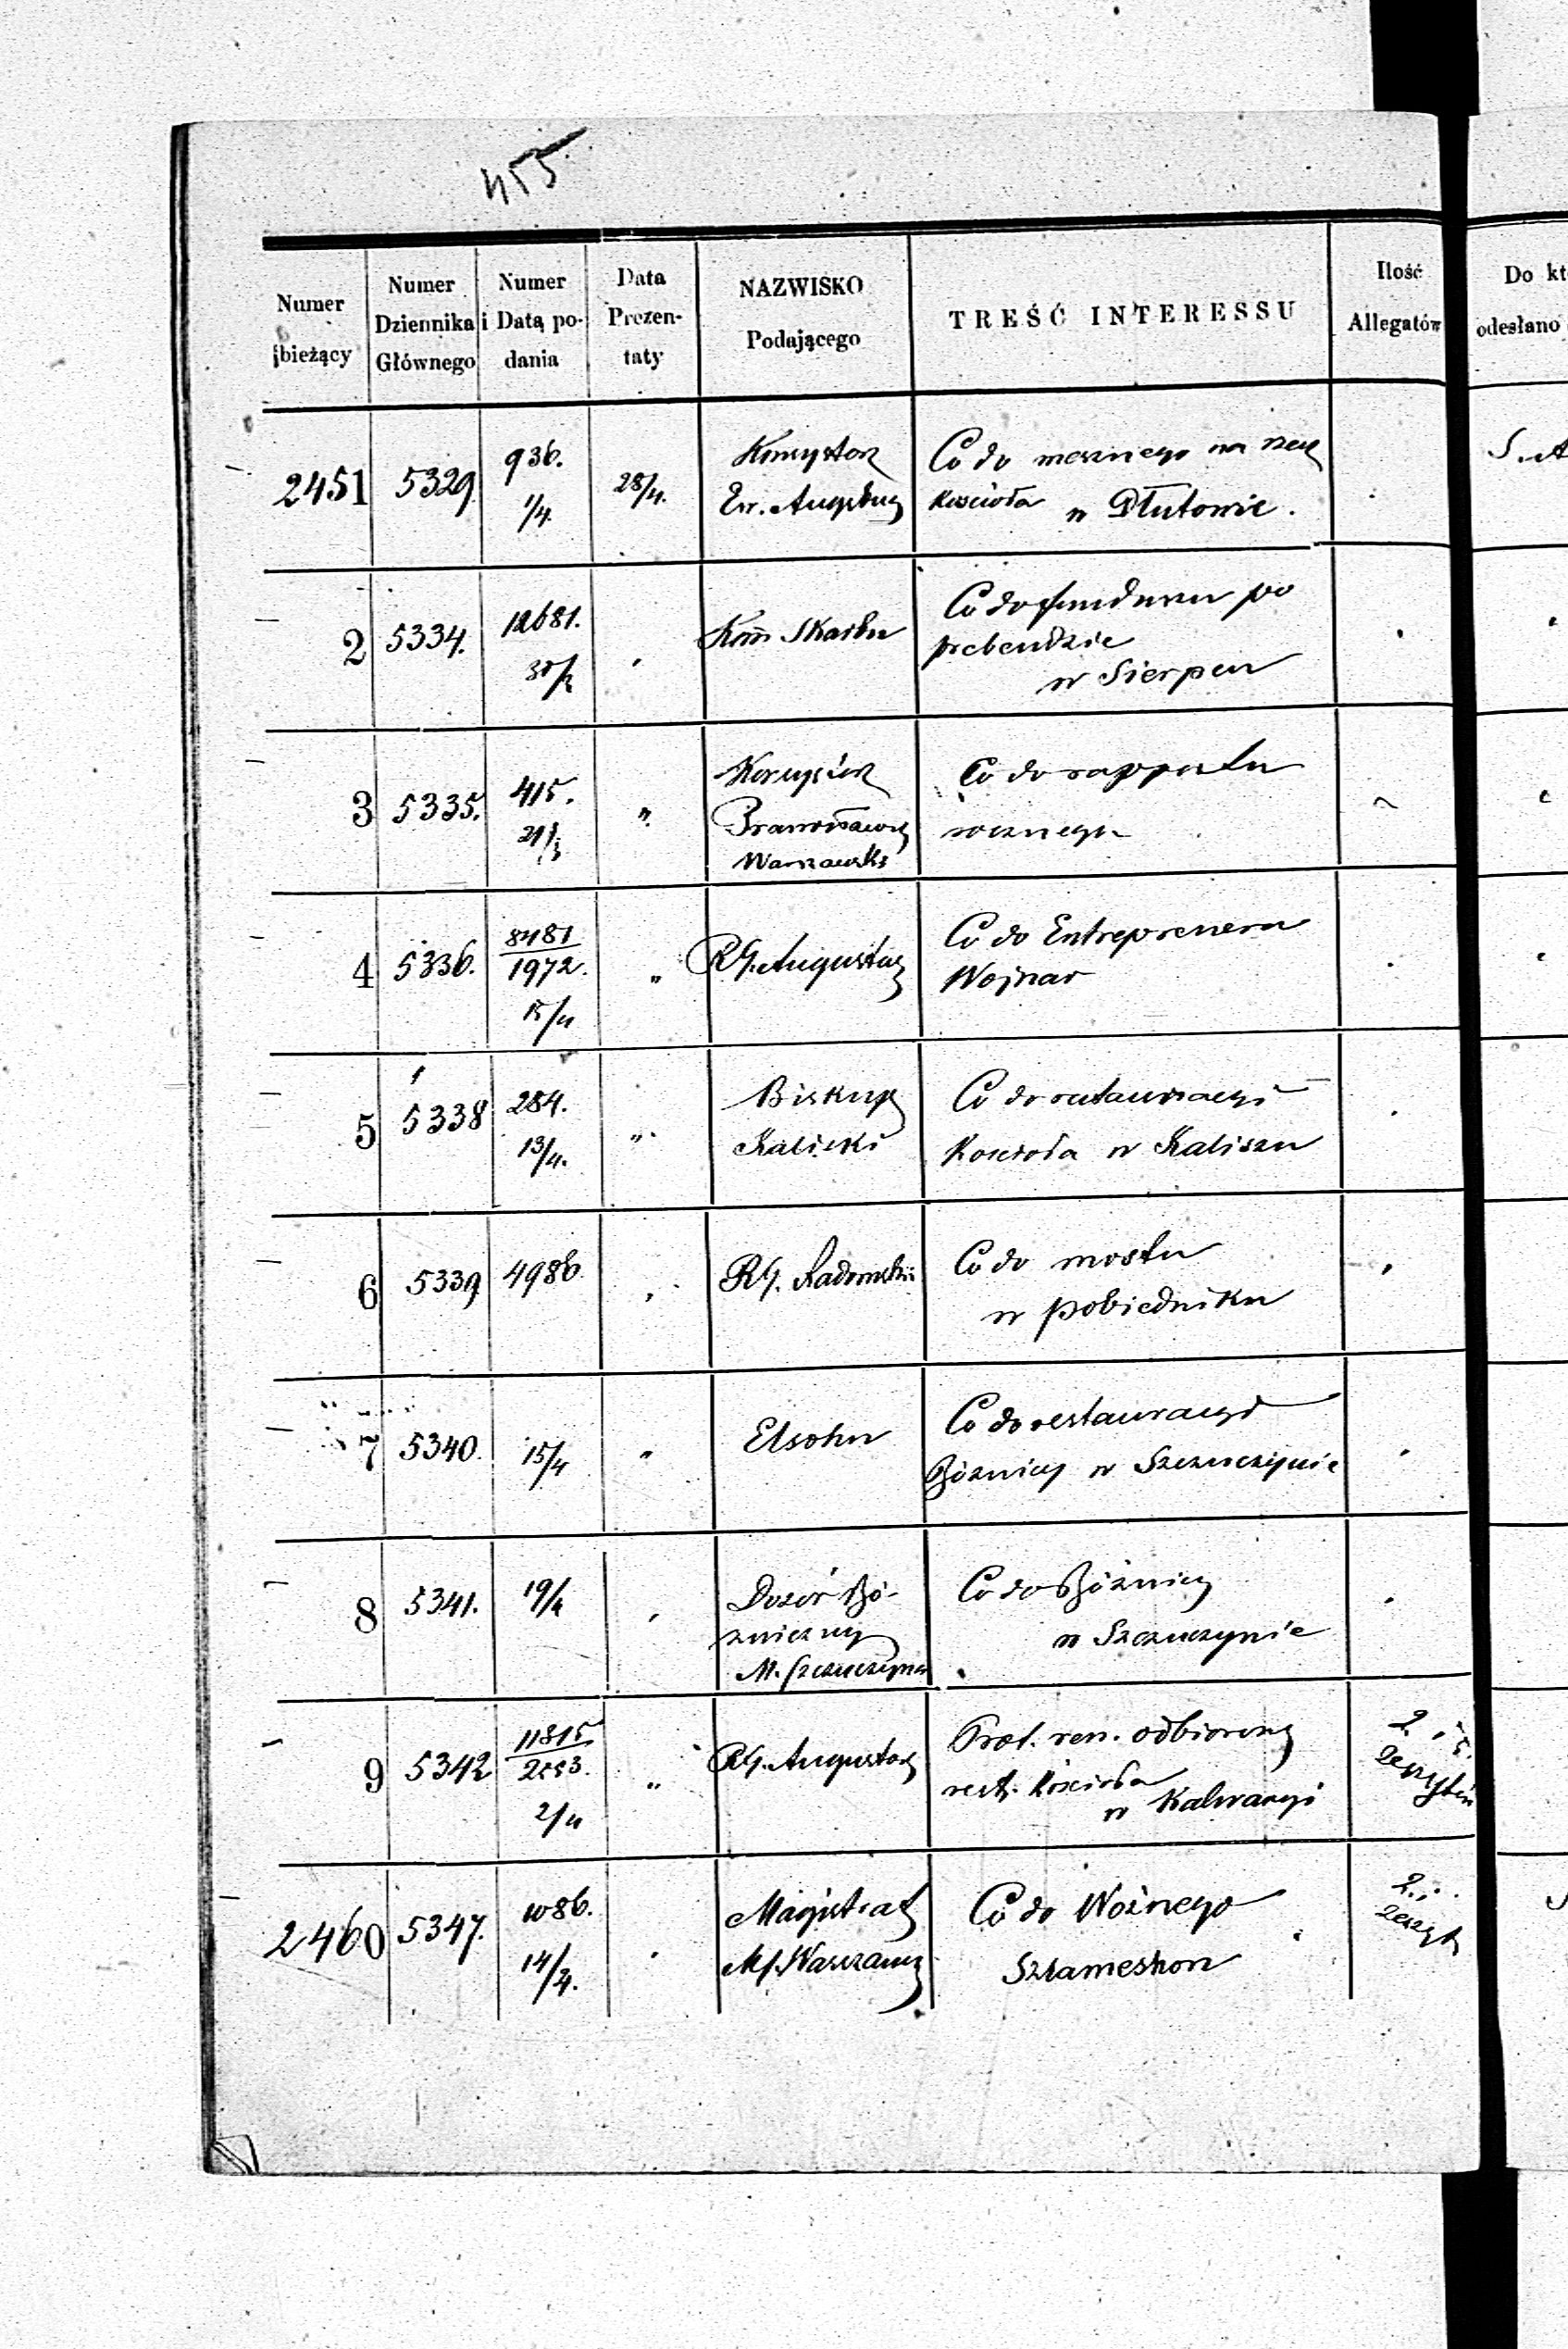 455
Numer bieżący | Numer Dziennika Głównego | Numer i Data podania | Data Prezentaty | NAZWISKO Podającego | TREŚĆ INTERESSU | Ilość Allegatów | Do kt odesłano
2451 | 5329 | 936. 1/4. | 28/4. | Konsystorz Ew. Augsburg | Co do mesznego na rzecz Kościoła w Dłutowie.
2 | 5334. | 12681. 30/3 | Kom Skarbu | Co do funduszu po prebendzie w Sierpcu
3 | 5335. | 415. 21/3 | " | Warszawski | Co do rapportu rocznego
4 | 5336. | 8481 1972. 15/4 | " | RG. Augustow | Co do Entreprenera Wojnar
5 | 5338 | 284. 13/4. | " | Biskup Kaliski | Co do restauracyi Kościoła w Kaliszu
6 | 5339 | 4986. | RG. Radomski | Co do mostu w Pobiedniku
7 | 5340. | 15/4 | " | Elsohn | Co do restauracyi Bóżnicy w Szczuczynie
8 | 5341. | 19/4 | Dozór Bóżniczny M. Szczuczyna | Co do Bóżnicy w Szczuczynie
9 | 5342 | 11815 2/4 | " | RG. Augustow | Prot. rew. odbiorczy rest. Kościoła w Kalwaryi | 2
2460 | 5347. | 1086. 14/4. | Magistrat M. Warszawy | Co do Woźnego | 2 zeszyt